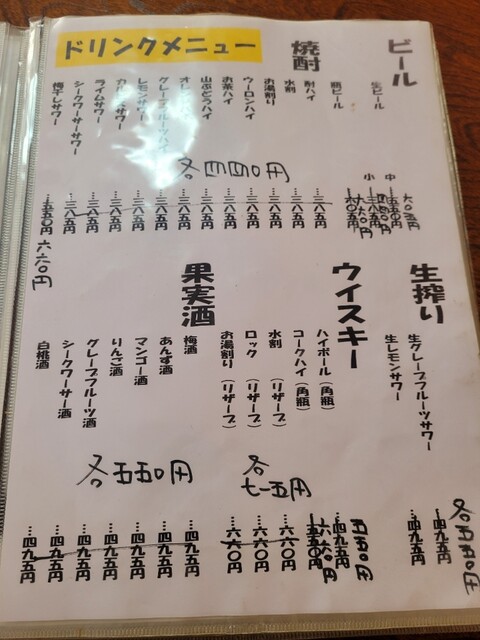 ドリンクメニュー
ビール
生ビール
中
小
瓶ビール
六〇五円
焼酎
酎ハイ
…三八五円
水割
…三八五円
お湯割り
…三八五円
ウーロンハイ
…三八五円
お茶ハイ
…三八五円
山ぶどうハイ
…三八五円
…三八五円
グレープフルーツハイ
…三八五円
レモンサワー
…三八五円
…三八五円
ライムサワー
…三八五円
シークワーサーサワー
…三八五円
梅干しサワー
…五五〇円
六六〇円
各四四〇円
生搾り
生グレープフルーツサワー
…四九五円
生レモンサワー
…四九五円
各五五〇円
ウイスキー
ハイボール(角瓶)
…四九五円
五五〇円
コークハイ(角瓶)
…五五〇円
六六〇円
水割(リザーブ)
…六〇〇円
ロック(リザーブ)
…六〇〇円
お湯割り(リザーブ)
…六〇〇円
各七一五円
果実酒
梅酒
…四九五円
あんず酒
…四九五円
マンゴー酒
…四九五円
りんご酒
…四九五円
グレープフルーツ酒
…四九五円
シークワーサー酒
…四九五円
白桃酒
…四九五円
各五五〇円